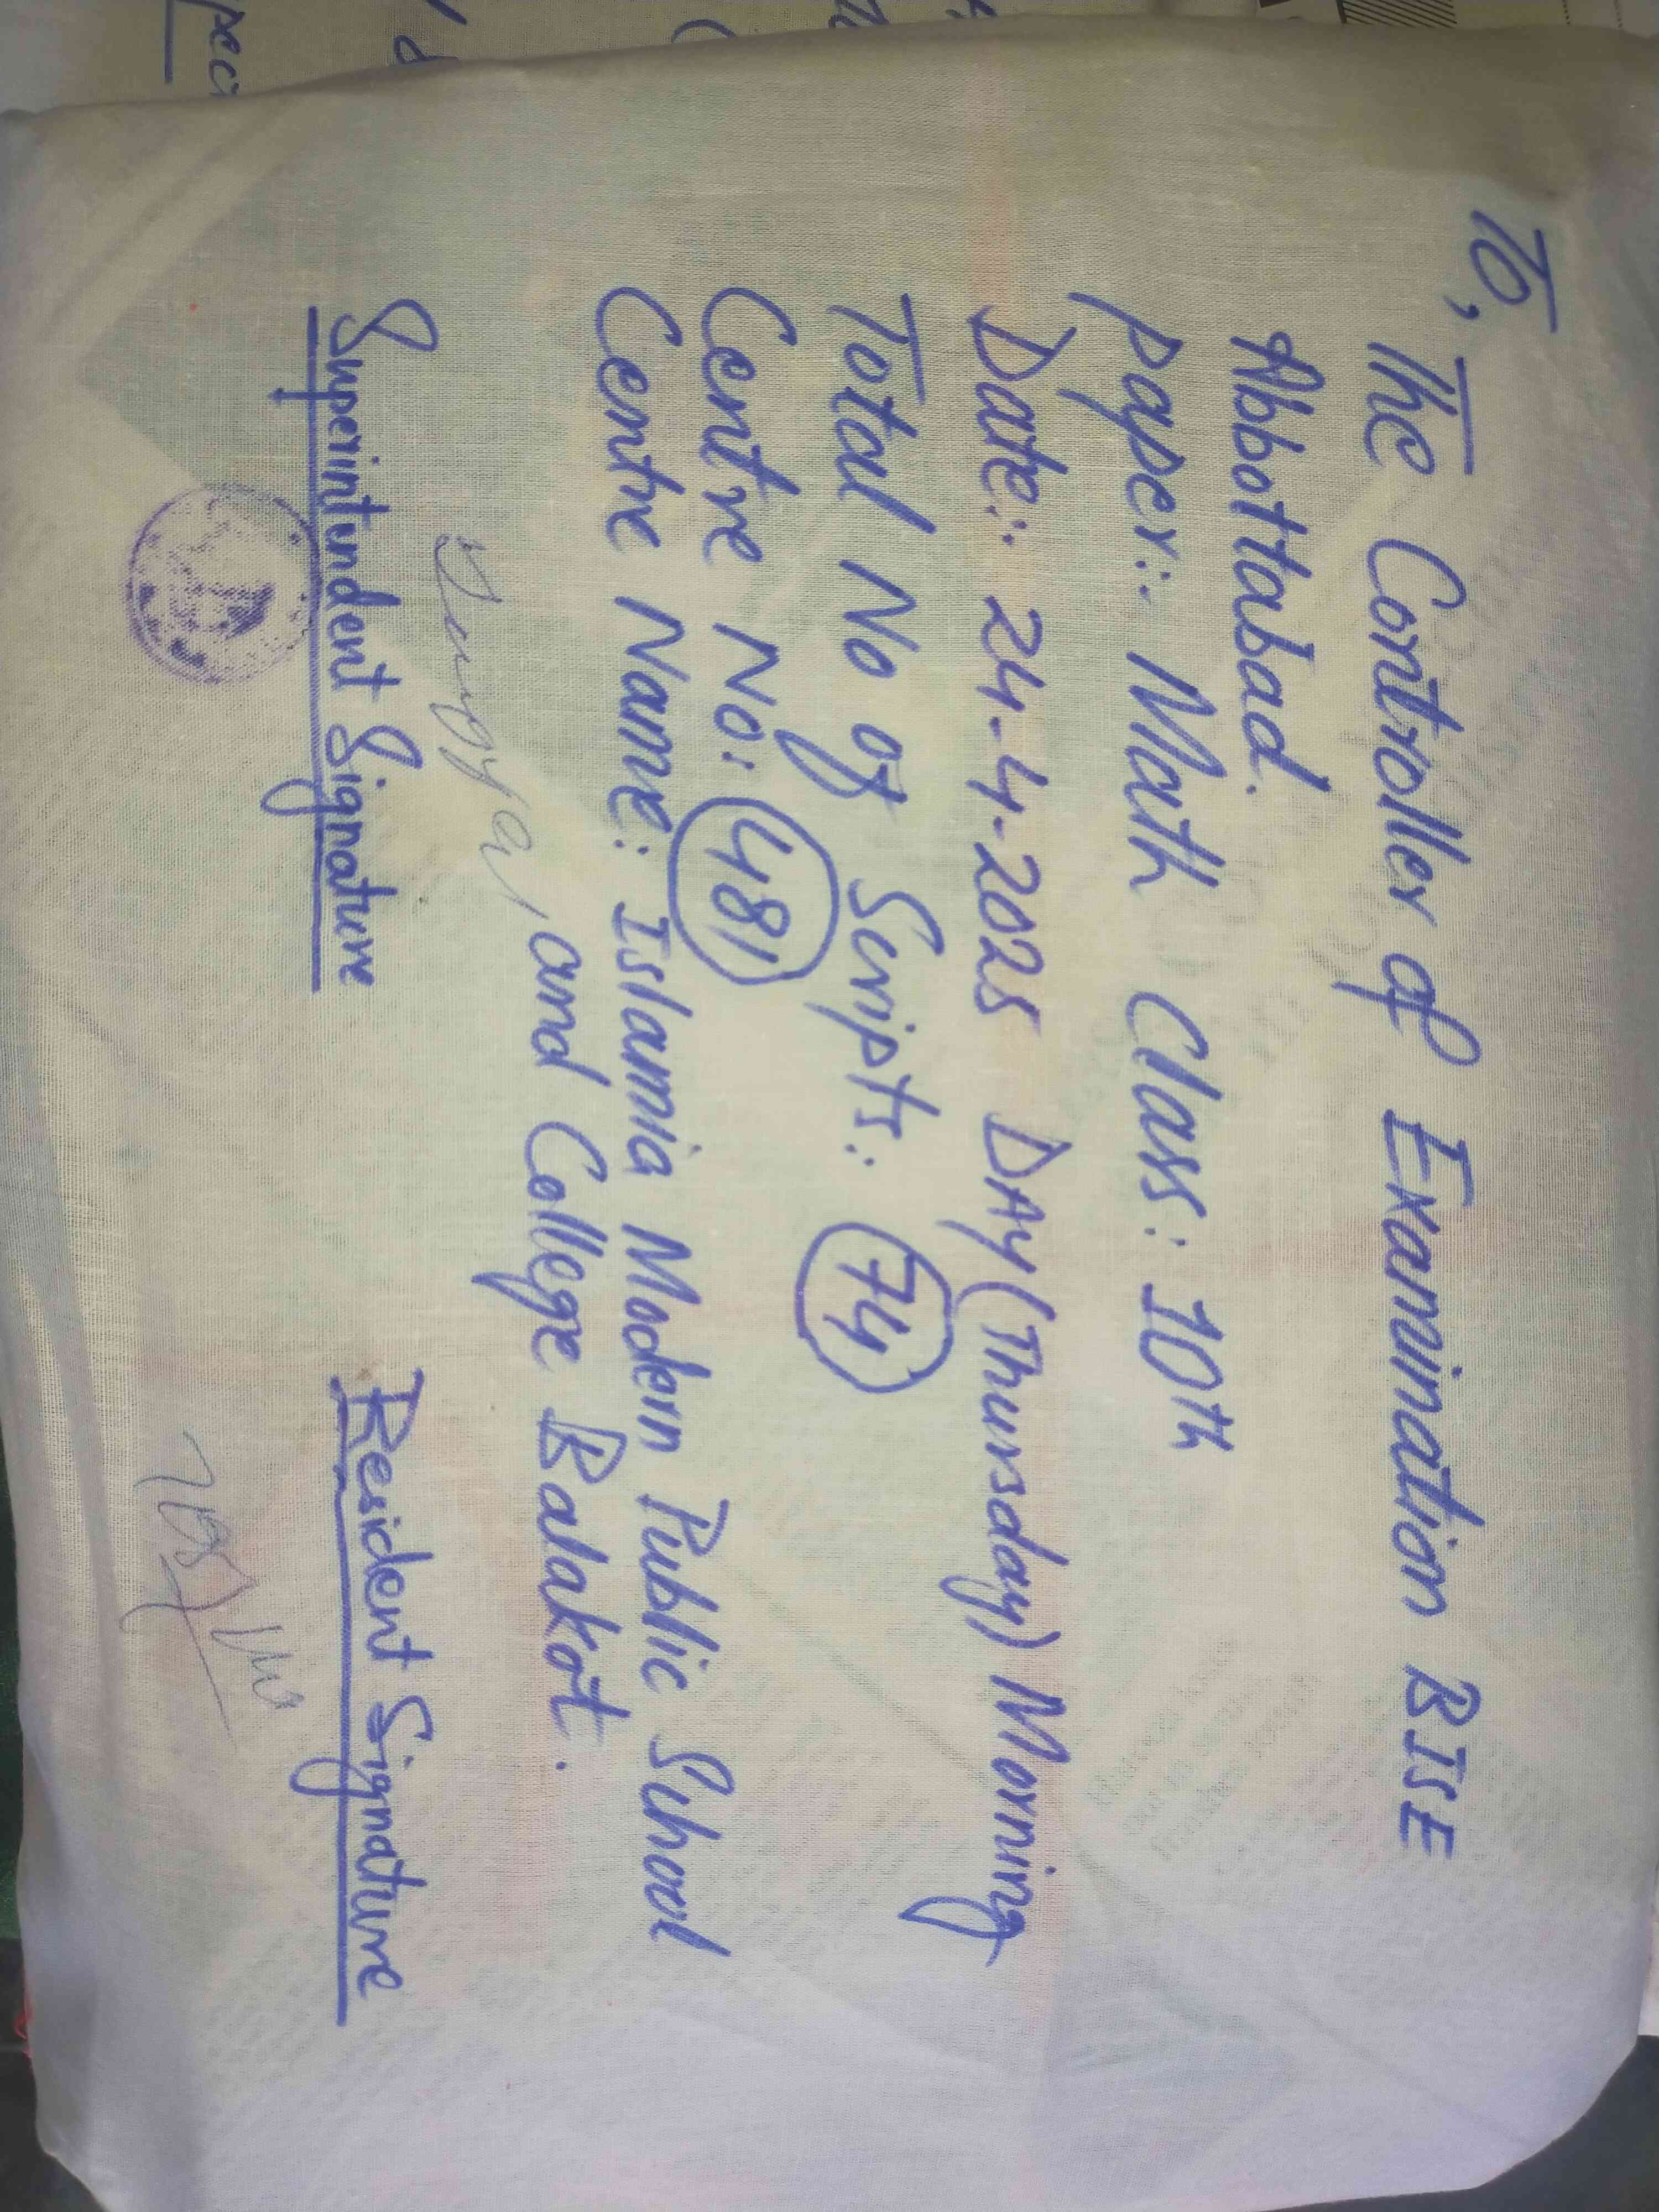 To,
The Controller of Examination BISE
Abbottabad.
Paper:- Math Class: 10th
Date:- 24-4-2025 DAY (Thursday) Morning
Total No of Scripts:- 74
Centre No: 481
Centre Name: Islamia Modern Public School
and College Balakot.
Superintendent Signature Resident Signature